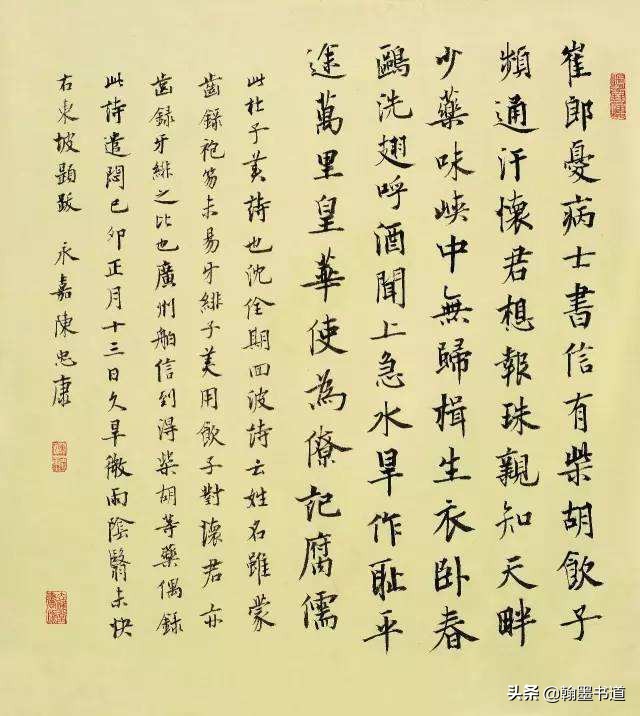 崔郎憂病士書信有柴胡飲子
頻通汗懷君想報珠親知天畔
少藥味峽中無歸楫生衣卧春
鷗洗翅呼酒聞上急水旱作耻平
途萬里皇華使為僚記腐儒
此杜子美詩也沈佺期回波詩云姓名雖蒙
齒錄袍笏未易牙緋子美用飲子對懷君亦
齒錄牙緋之比也廣州舶信到得柴胡等藥偶錄
此詩遣悶己卯正月十三日久旱微雨陰翳未快
右東坡題跋 永嘉陳忠康
头条 @翰墨书道